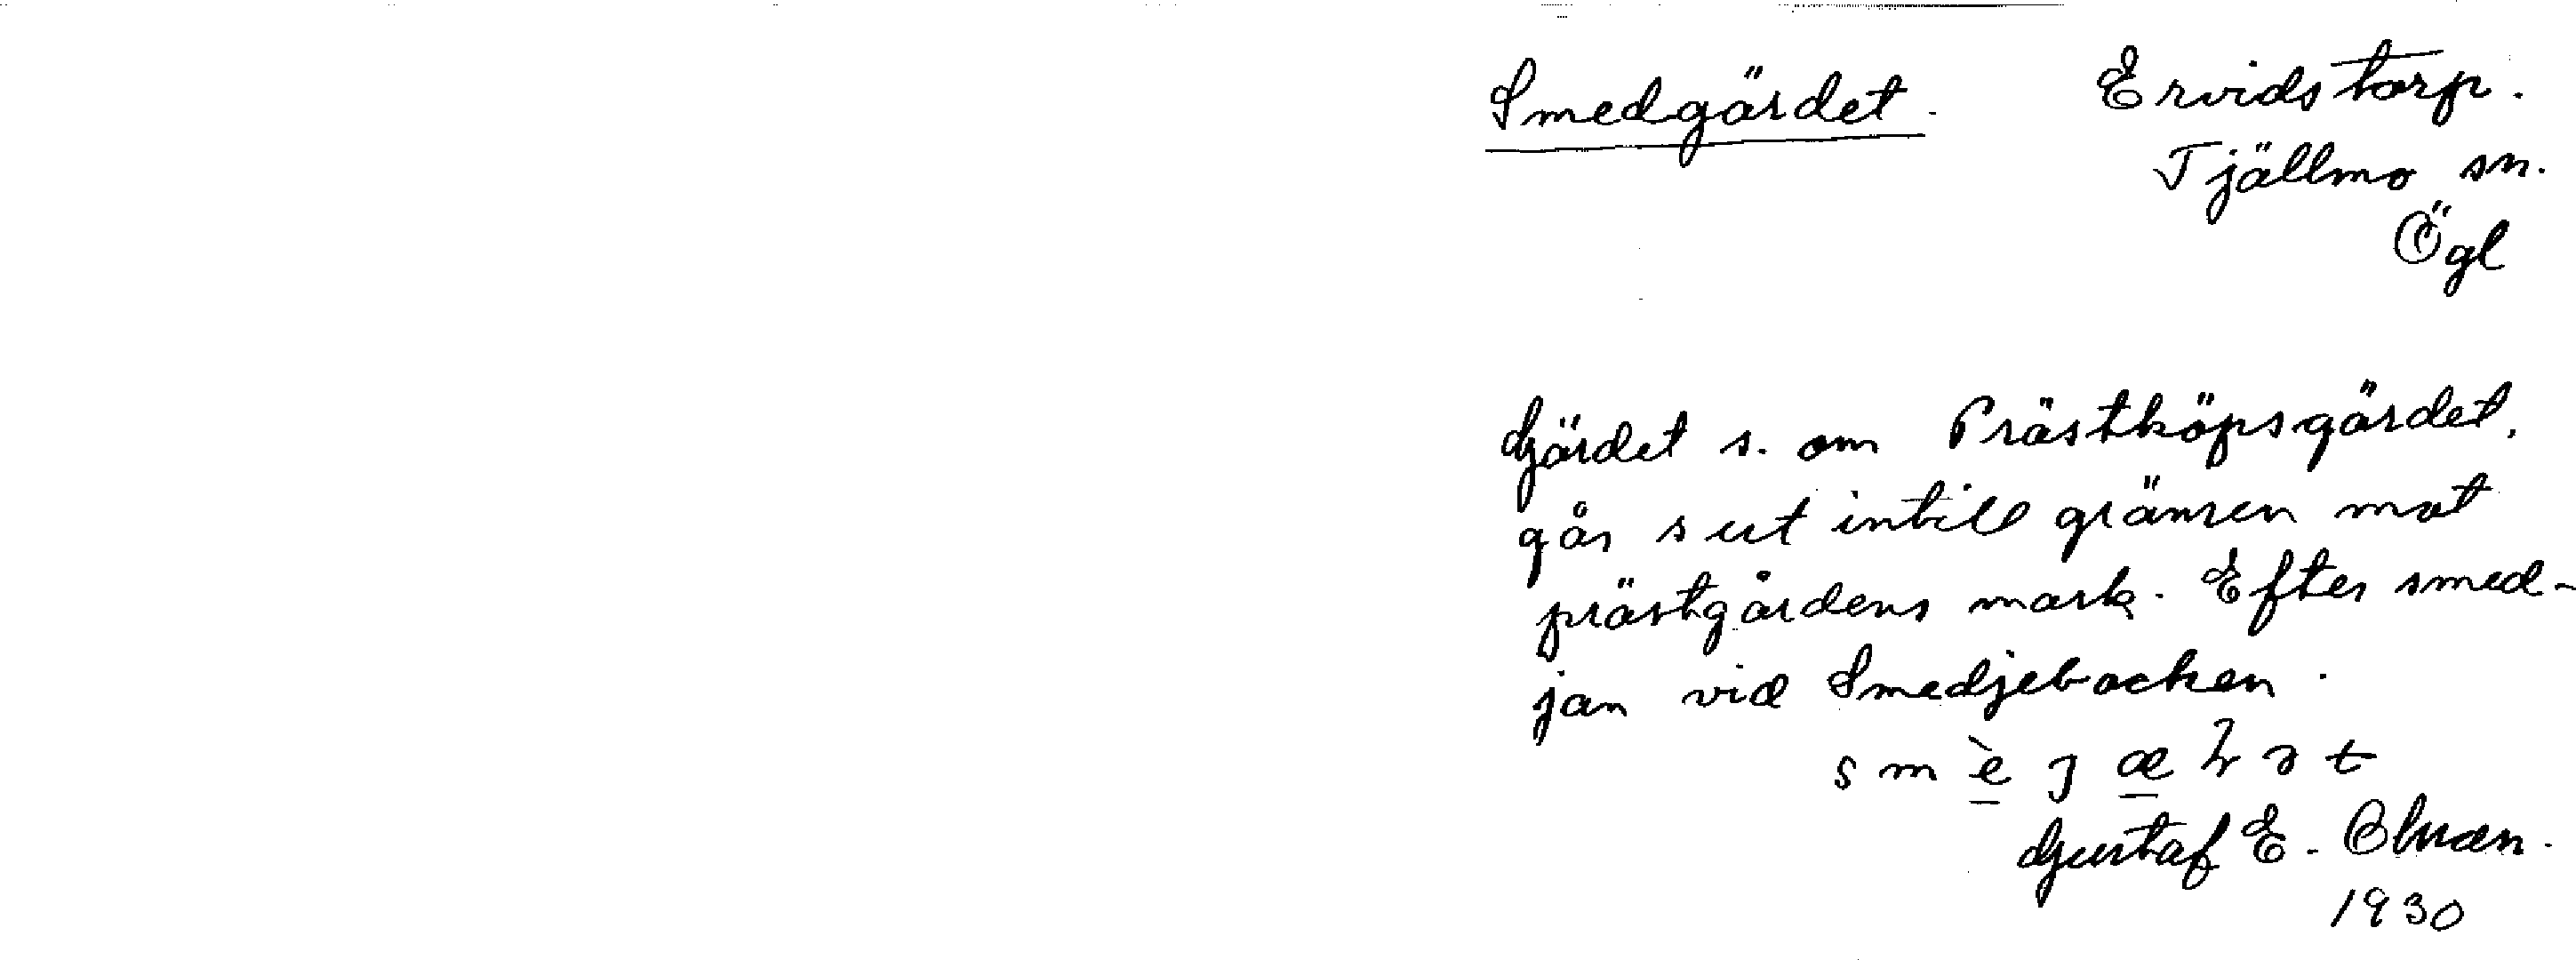 Smedgärdet. Ervidstorp.
Tjällmo sn.
Ögl
Gärdet s. om Prästköpsgärdet,
går s ut intill gränsen mot
prästgårdens mark. Efter smed-
jan vid Smedjebacken.
Gustaf E. Ohman.
1930